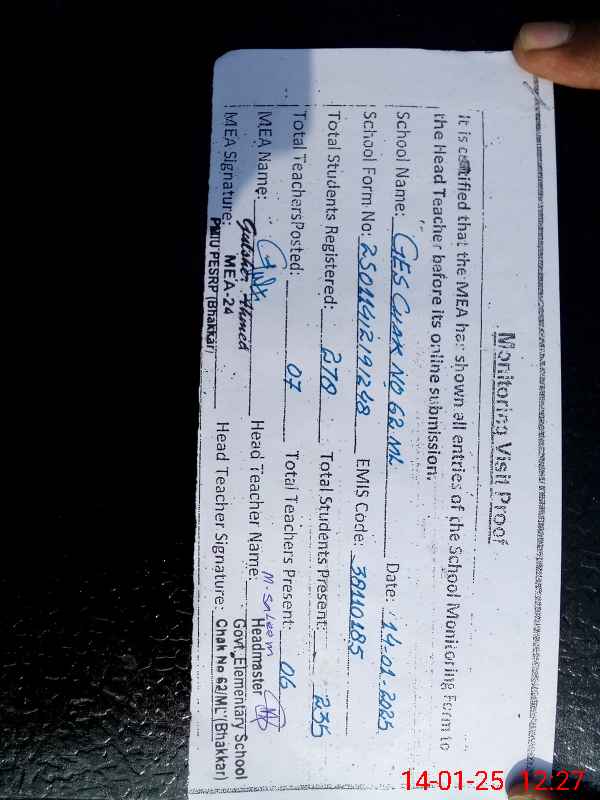 Monitoring Visit Proof
It is certified that the MEA has shown all entries of the School Monitoring Form to
the Head Teacher before its online submission.
School Name: GES CHAK NO 62 ML Date: 14-01-2025
School Form No: EMIS Code: 38110185
Total Students Registered: 270 Total Students Present: 235
Total Teachers Posted: 07 Total Teachers Present: 06
MEA Name: Gulsher Ahmed Head Teacher Name: M. Saleem Headmaster
MEA Signature: MEA-24 Head Teacher Signature: Govt. Elementary School
PMIU PESRP (Bhakkar) Chak No 62/ML (Bhakkar)
14-01-25 12:27